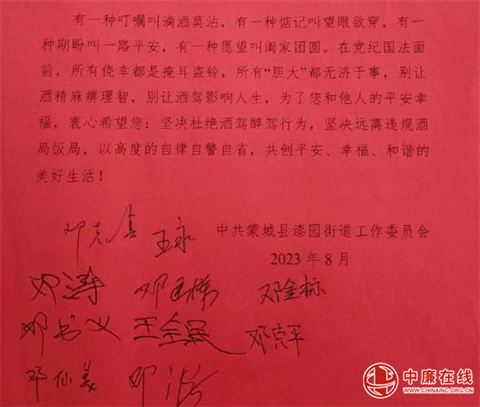 有一种叮嘱叫滴酒莫沾，有一种惦记叫望眼欲穿，有一
种期盼叫一路平安，有一种愿望叫阖家团圆。在党纪国法面
前，所有侥幸都是掩耳盗铃，所有“胆大”都无济于事，别让
酒精麻痹理智，别让酒驾影响人生，为了您和他人的平安幸
福，衷心希望您：坚决杜绝酒驾醉驾行为，坚决远离违规酒
局饭局，以高度的自律自警自省，共创平安、幸福、和谐的
美好生活！
邓克喜 王永
中共蒙城县漆园街道工作委员会
2023 年 8 月
邓涛 邓金标
邓书义 王全民 邓克平
邓仙美
中廉在线
WWW.CHINAINC.ORG.CN